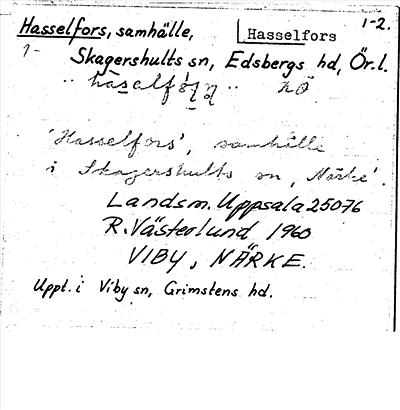 Hasselfors, samhälle,
Hasselfors
1-2.
Skagershults sn, Edsbergs hd, Ör.l.
'Hasselfors', samhälle
i Skagershults sn, Närke'.
Landsm. Uppsala 25076
R. Västerlund 1960
VIBY, NÄRKE.
Uppt. i Viby sn, Grimstens hd.